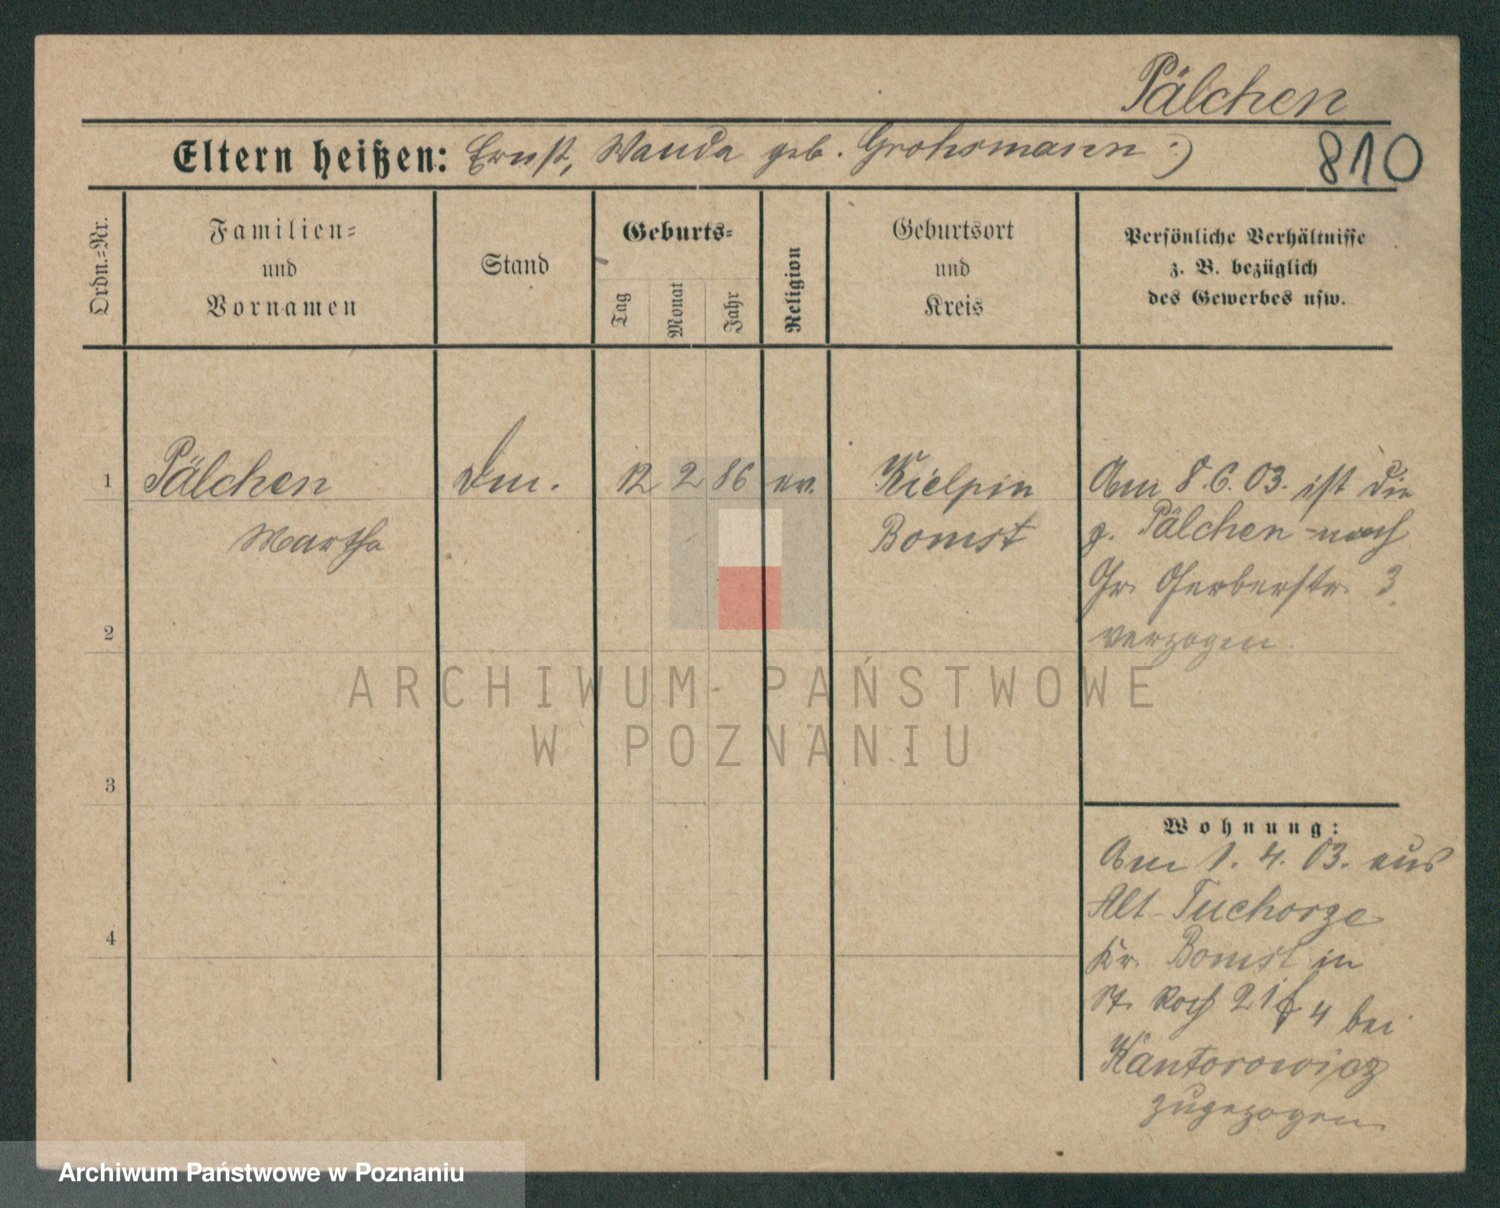 Pälchen
Eltern heißen: Ernst, Wanda geb. Grohsmann :)
810
Ordn.=Nr.
Familien=
und
Vornamen
Stand
Geburts=
Tag
Monat
Jahr
Religion
Geburtsort
und
Kreis
Persönliche Verhältnisse
z. B. bezüglich
des Gewerbes usw.
1
Pälchen
Martha
12
2
86
ev.
Kielpin
Bomst
Am 8.6.03. ist die
p. Pälchen nach
Gr. Gerberstr. 3
verzogen.
2
3
4
Wohnung:
Am 1. 4. 03. aus
Alt-Tuchorze
Kr. Bomst in
St. Roch 4 bei
Kantorowicz
zugezogen.
ARCHIWUM PAŃSTWOWE
W POZNANIU
Archiwum Państwowe w Poznaniu